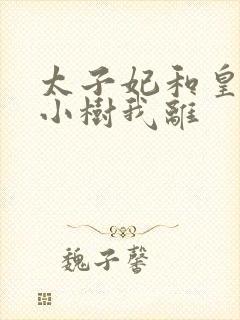 太子妃和皇
小樹我離
魏子馨